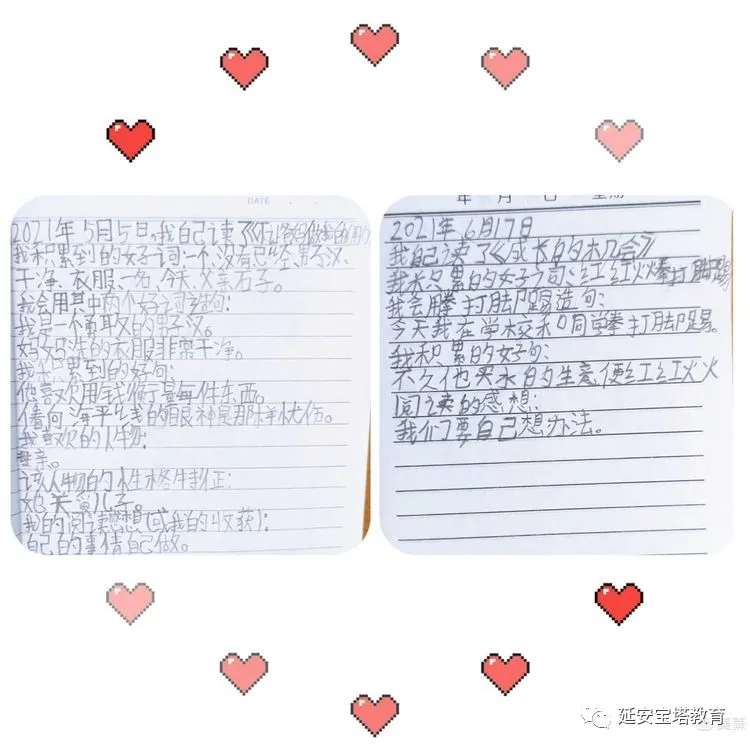 DATE
2021年5月5日,我自己读了《
我积累到的好词一个、没有
干净、衣服、一名、今天、父亲、石子。
我会用其中两个好词造句:
我是一个勇敢的男子汉。
妈妈洗的衣服非常干净。
我积累到的好句:
他喜欢用钱衡量每件东西。
海平线的眼神是那样
我喜欢的人物:
母亲。
该人物的性格特征:
关爱儿子。
我的阅读感想(或我的收获):
自己的事情自己做。
年 月 日 星期
2021年6月17日
我自己读了《成长的机会》
我积累的好词:红红火火拳打脚踢
我会用拳打脚踢造句:
今天我在学校和同学拳打脚踢。
我积累的好句:
不久他买水的生意便红红火火
阅读的感想:
我们要自己想办法。
延安宝塔教育
美篇